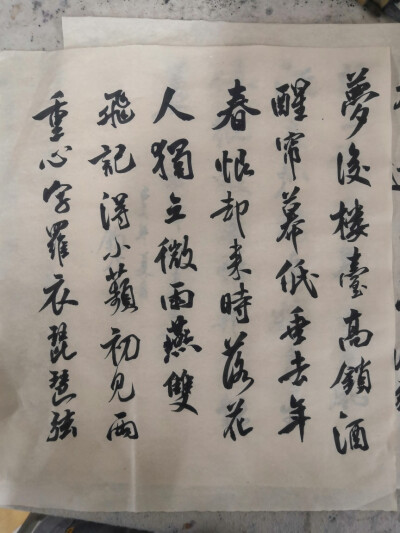 夢後楼臺高鎖酒
醒帘幕低垂去年
春恨却来時落花
人獨立微雨燕雙
飛記得小蘋初見兩
重心字羅衣琵琶弦